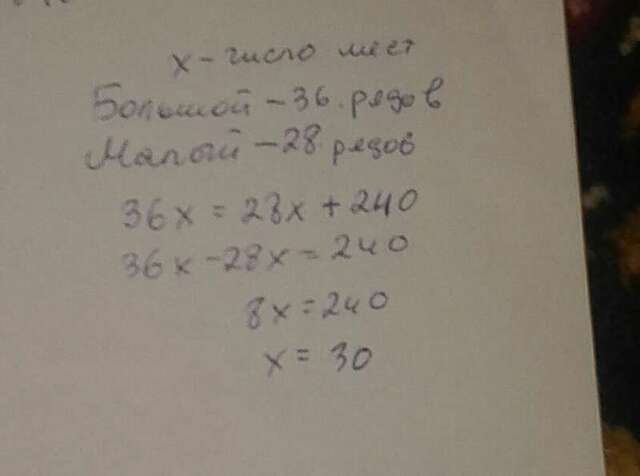 x - число мест
Большой - 36 рядов
Малый - 28 рядов
36x = 28x + 240
36x - 28x = 240
8x = 240
x = 30